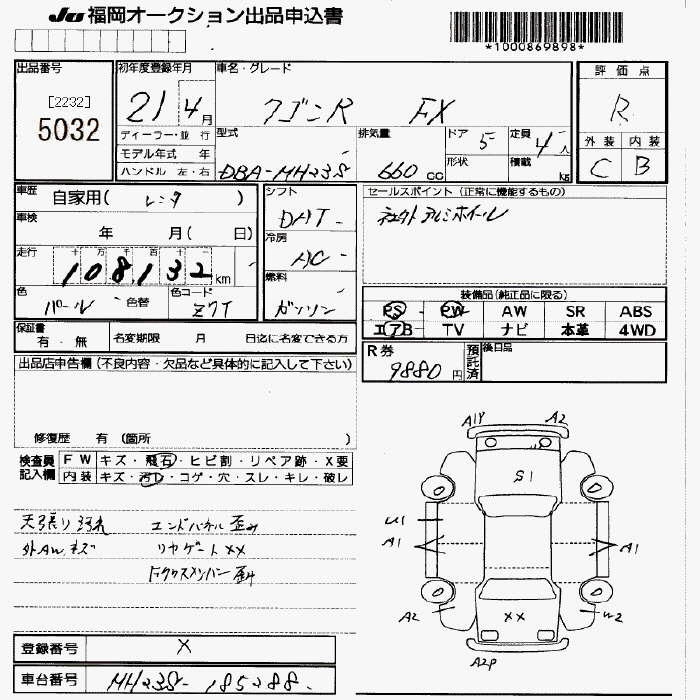 JU 福岡オークション出品申込書
*1000869898*
出品番号
[2232]
5032
初年度登録年月
21 4月
ディーラー・並 行
モデル年式 年
ハンドル 左・右
車名・グレード
ワゴンR FX
型式
DBA-MH23S
排気量
660 CC
ドア 5
形状
定員 4人
積載 kg
評価点
R
外装 内装
C B
車歴
自家用( レンタ )
車検
年 月( 日)
走行 十 万 千 百 十
108132 km
色 パール 色替
色コード Z7T
シフト
DAT
冷房
AC
燃料
ガソリン
セールスポイント (正常に機能するもの)
社外アルミホイール
装備品(純正品に限る)
PS PW AW SR ABS
エアB TV ナビ 本革 4WD
保証書
有・無
名変期限 月 日迄に名変できる方
R券
9880円
預託済
後日品
出品店申告欄 (不良内容・欠品など具体的に記入して下さい)
修復歴 有 (箇所 )
検査員記入欄
FW キズ・飛石・ヒビ割・リペア跡・X要
内装 キズ・汚レ・コゲ・穴・スレ・キレ・破レ
天張り汚れ エンドパネル歪み
外AW.キズ リヤゲートXX
A1P A2
S1
U1
A1 A1
A2 XX W2
A2P
登録番号 X
車台番号 MH23S-185288